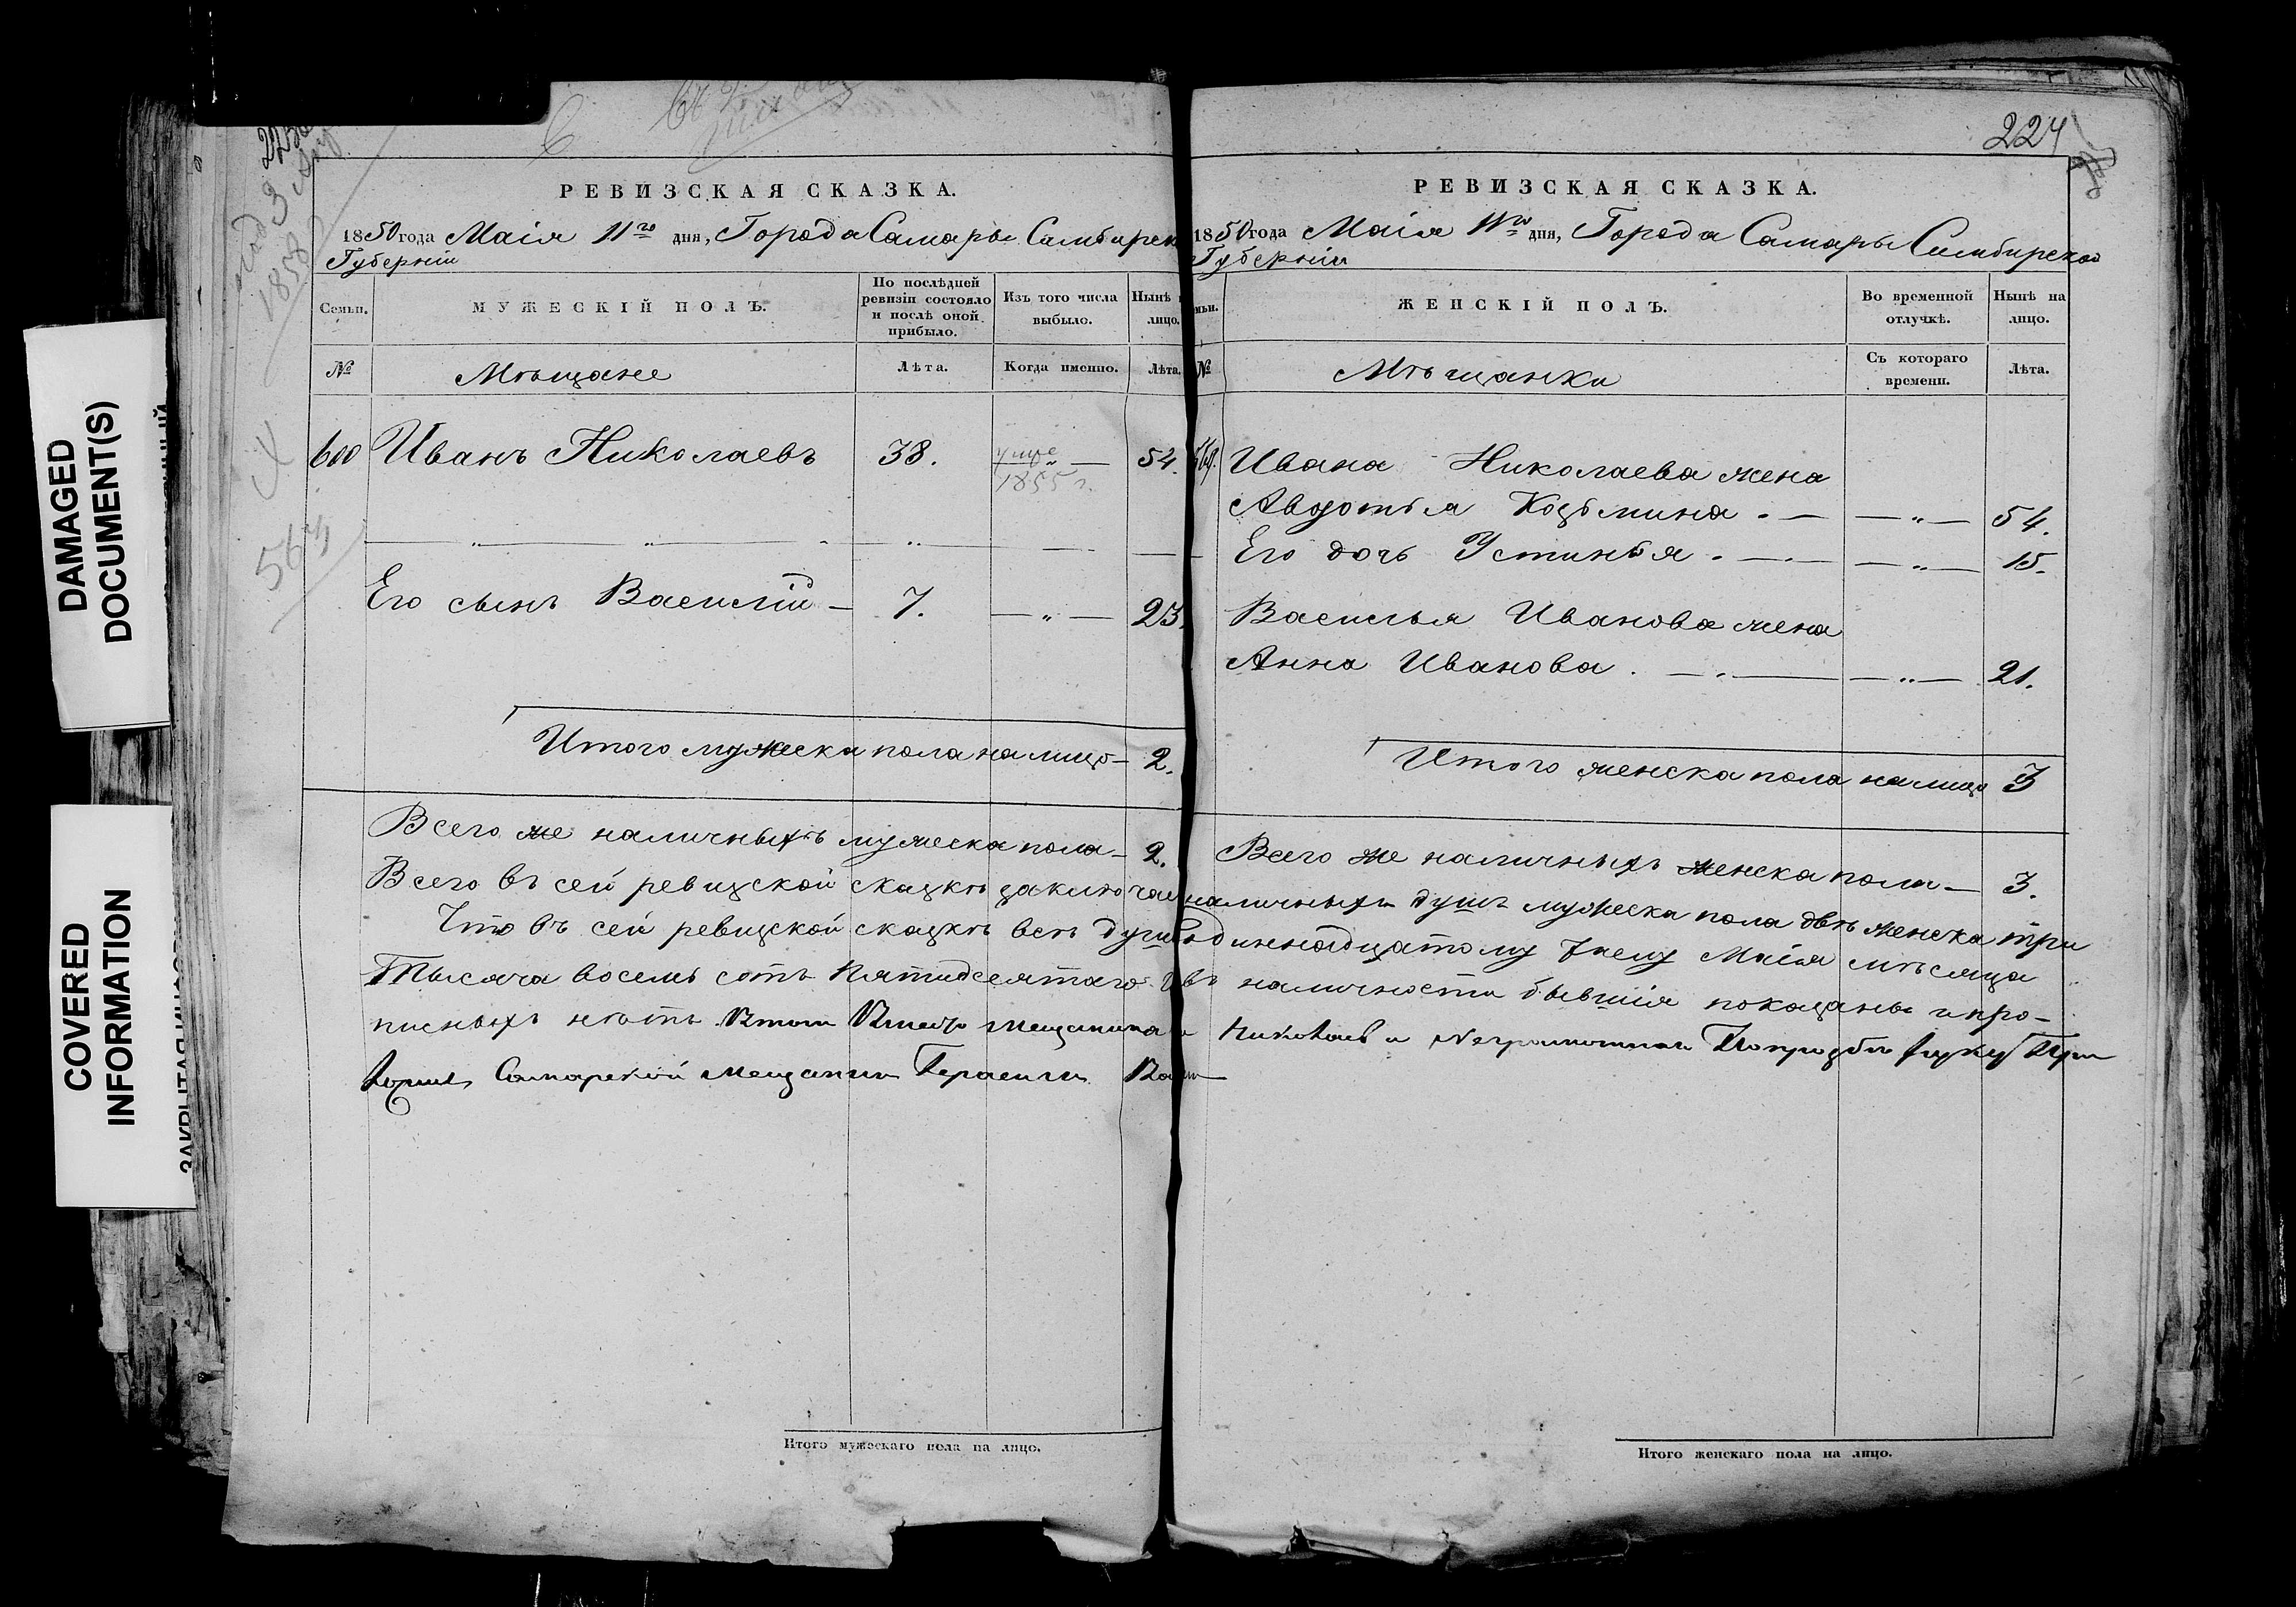 DAMAGED
DOCUMENT(S)
COVERED
INFORMATION
1858
564
РЕВИЗСКАЯ СКАЗКА.
1850 года Маія 11го дня, Города Самары Симбирск
Губерніи
Семьи.
МУЖЕСКІЙ ПОЛЪ.
По послѣдней
ревизіи состояло
и послѣ оной
прибыло.
Изъ того числа
выбыло.
Нынѣ
лицо.
№
Мѣщане
Лѣта.
Когда именно.
Лѣта.
600 Иванъ Николаевъ 38. 54.
1855 г.
Его сынъ Василій 7. „ 23.
Итого мужеска пола на лицо 2.
Всего же наличныхъ мужеска пола 2.
Всего въ сей ревизской сказкѣ заключае
Что въ сей ревизской сказкѣ всѣ души
Тысяча восемь сотъ пятидесятаго
писныхъ нѣтъ
Самарской мещанин Герасим
Итого мужескаго пола на лицо.
224
РЕВИЗСКАЯ СКАЗКА.
1850 года Маія 11го дня, Города Самары Симбирской
Губерніи
мьи.
ЖЕНСКІЙ ПОЛЪ.
Во временной
отлучкѣ.
Нынѣ на
лицо.
№
Мѣщанки
Съ котораго
времени.
Лѣта.
Ивана Николаева жена
Авдотья Козьмина „ 54.
Его дочь Устинья „ 15.
Василья Иванова жена
Анна Иванова „ 21.
Итого женска пола на лицо 3
Всего же наличныхъ женска пола 3.
наличныхъ душъ мужеска пола двѣ женска три
одиннадцатому числу Маія мѣсяца
въ наличности бывшія показаны и про-
Итого женскаго пола на лицо.